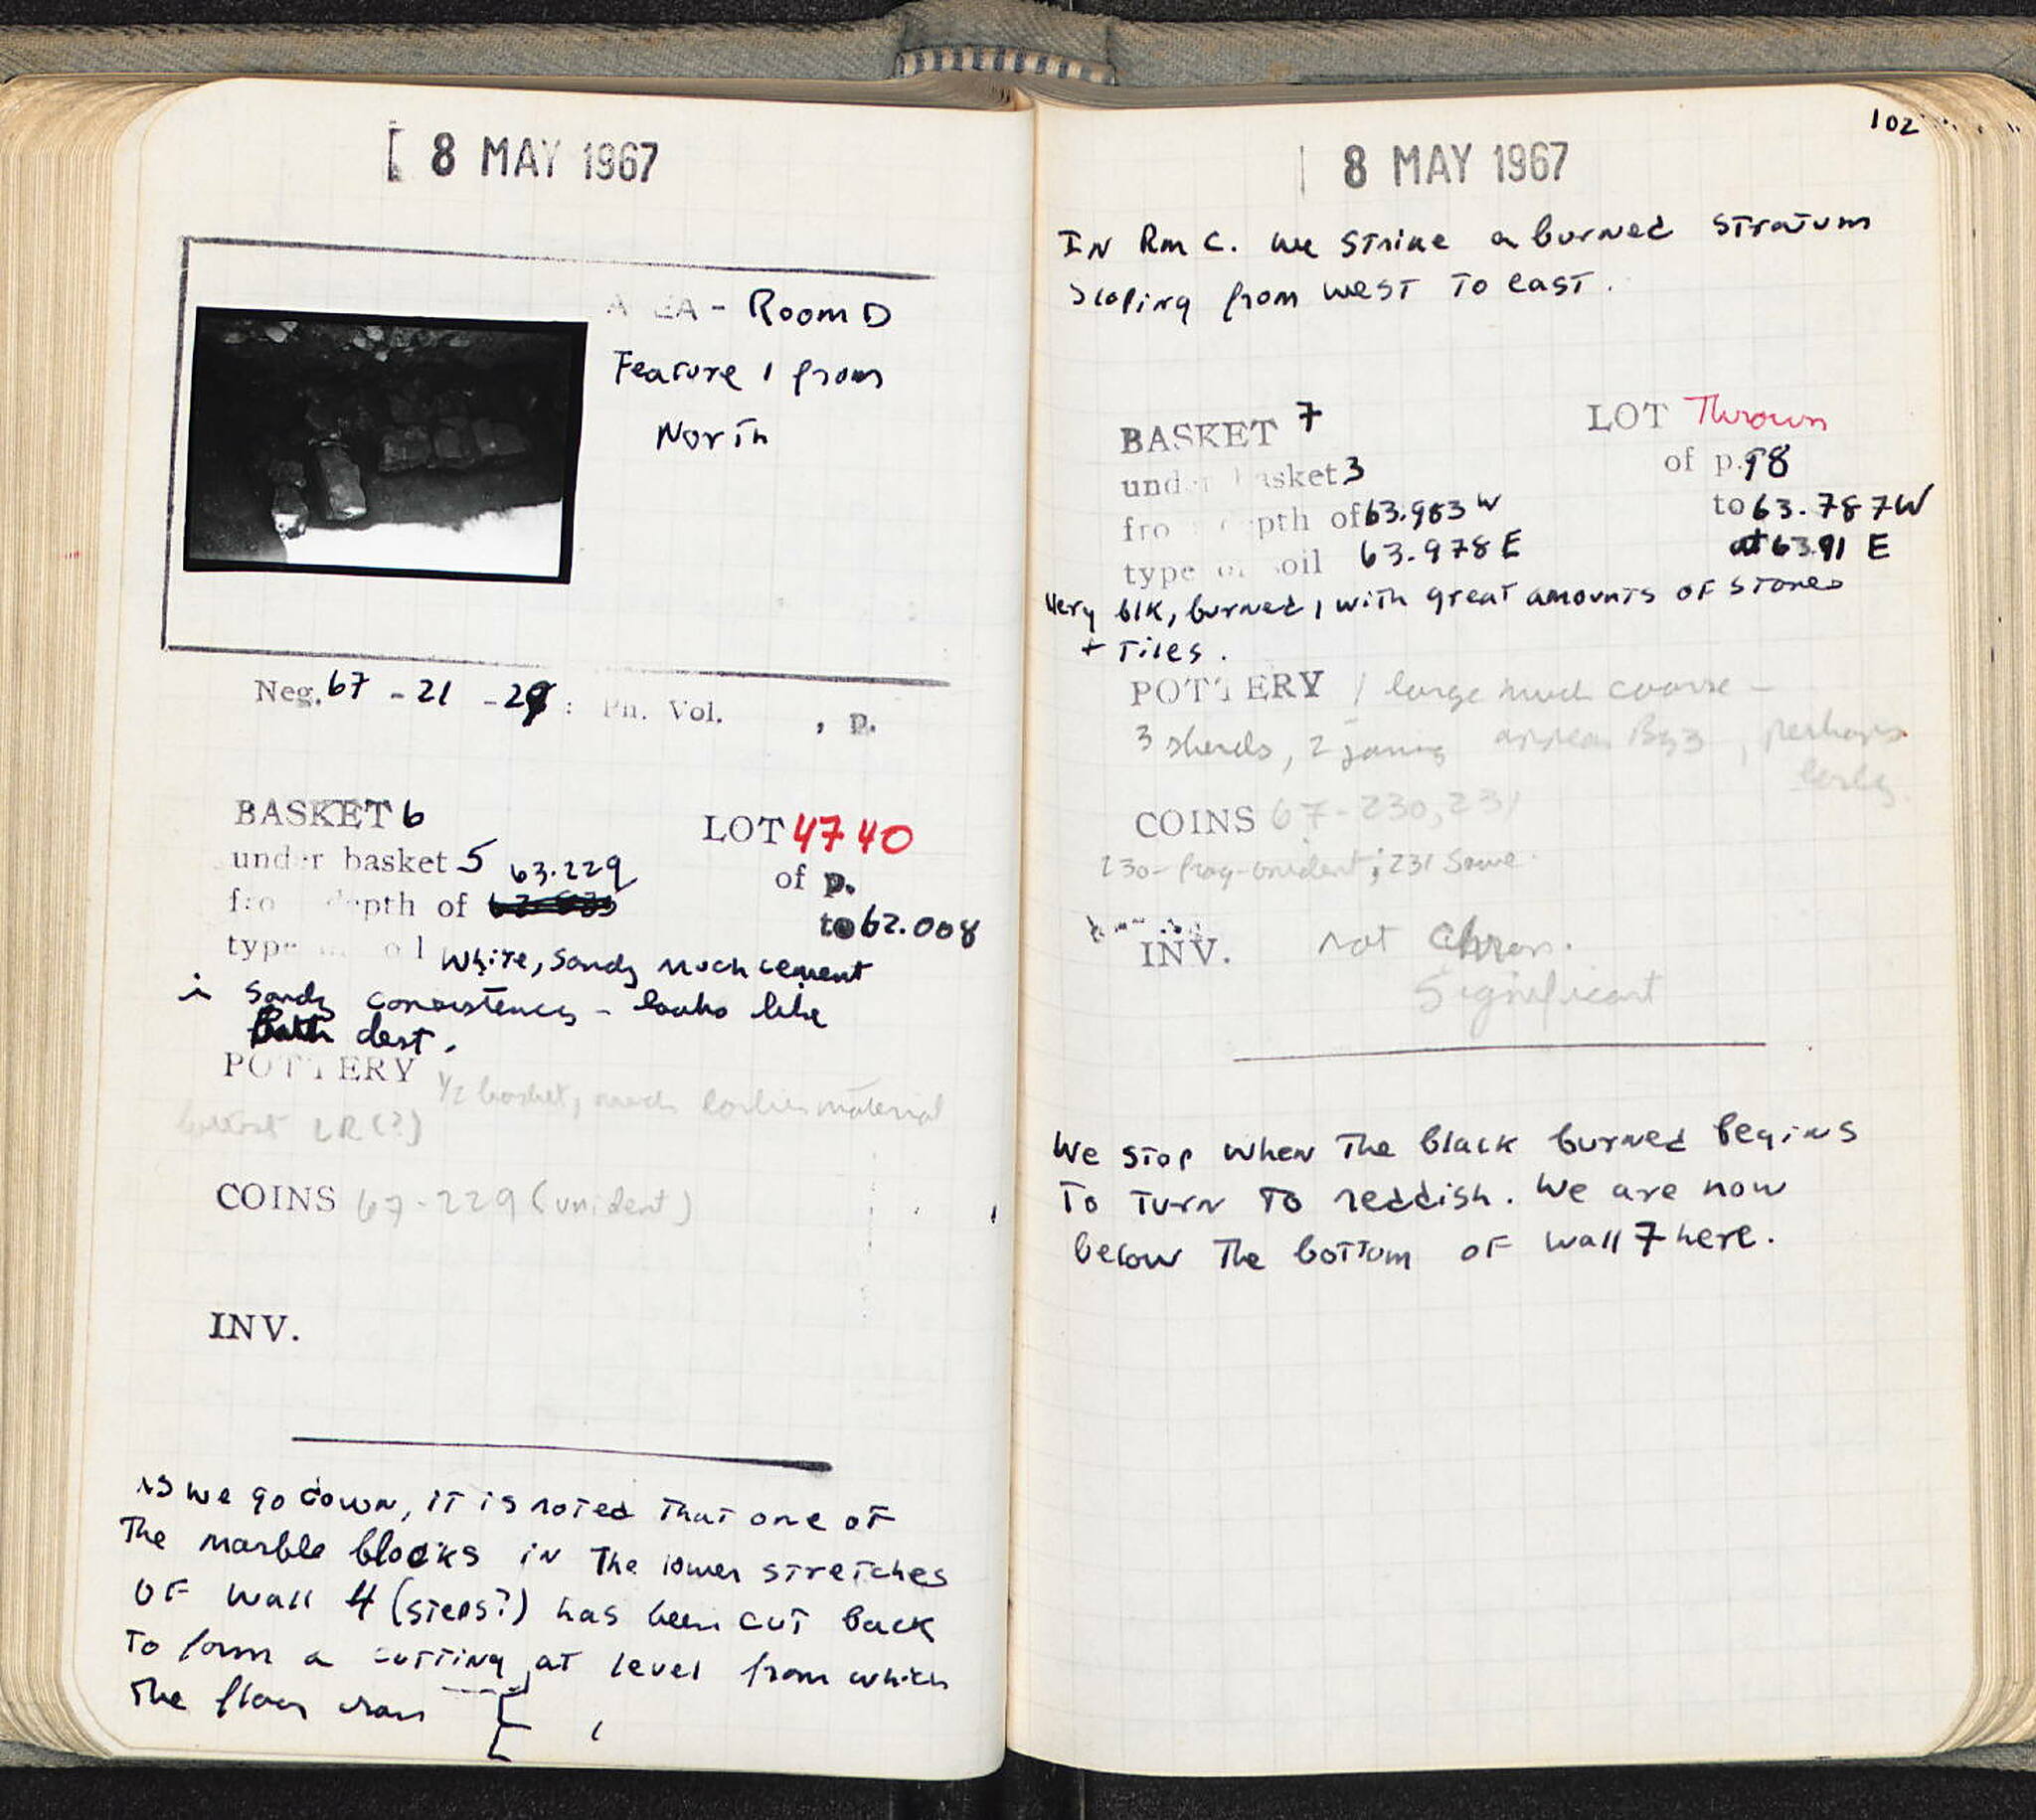 8 MAY 1967
AREA - Room D
Feature 1 from
North
Neg. 67 - 21 - 29 : Ph. Vol. , p.
BASKET 6 LOT 4740
under basket 5 of p.
from depth of 63.229 to 62.008
type of soil White, sandy much cement
sandy consistency - looks like
dest.
POTTERY 1/2 basket, much earlier material
latest LR (?)
COINS 67-229 (unident)
INV.
As we go down, it is noted that one of
The marble blocks in The lower stretches
of wall 4 (steps?) has been cut back
To form a cutting at level from which
The floor
102
8 MAY 1967
In Rm C. we strike a burned stratum
sloping from west to east.
BASKET 7 LOT Thrown
under basket 3 of p. 98
from depth of 63.983 W to 63.787 W
type of soil 63.978 E at 63.91 E
Very blk, burned, with great amounts of stones
+ Tiles.
POTTERY 1 large much coarse -
3 sherds, 2 joining appear Byz, perhaps
early
COINS 67-230, 231
230 - frag - unident; 231 same.
INV. not chron.
significant
We stop when The black burned begins
To turn to reddish. We are now
below The bottom of wall 7 here.